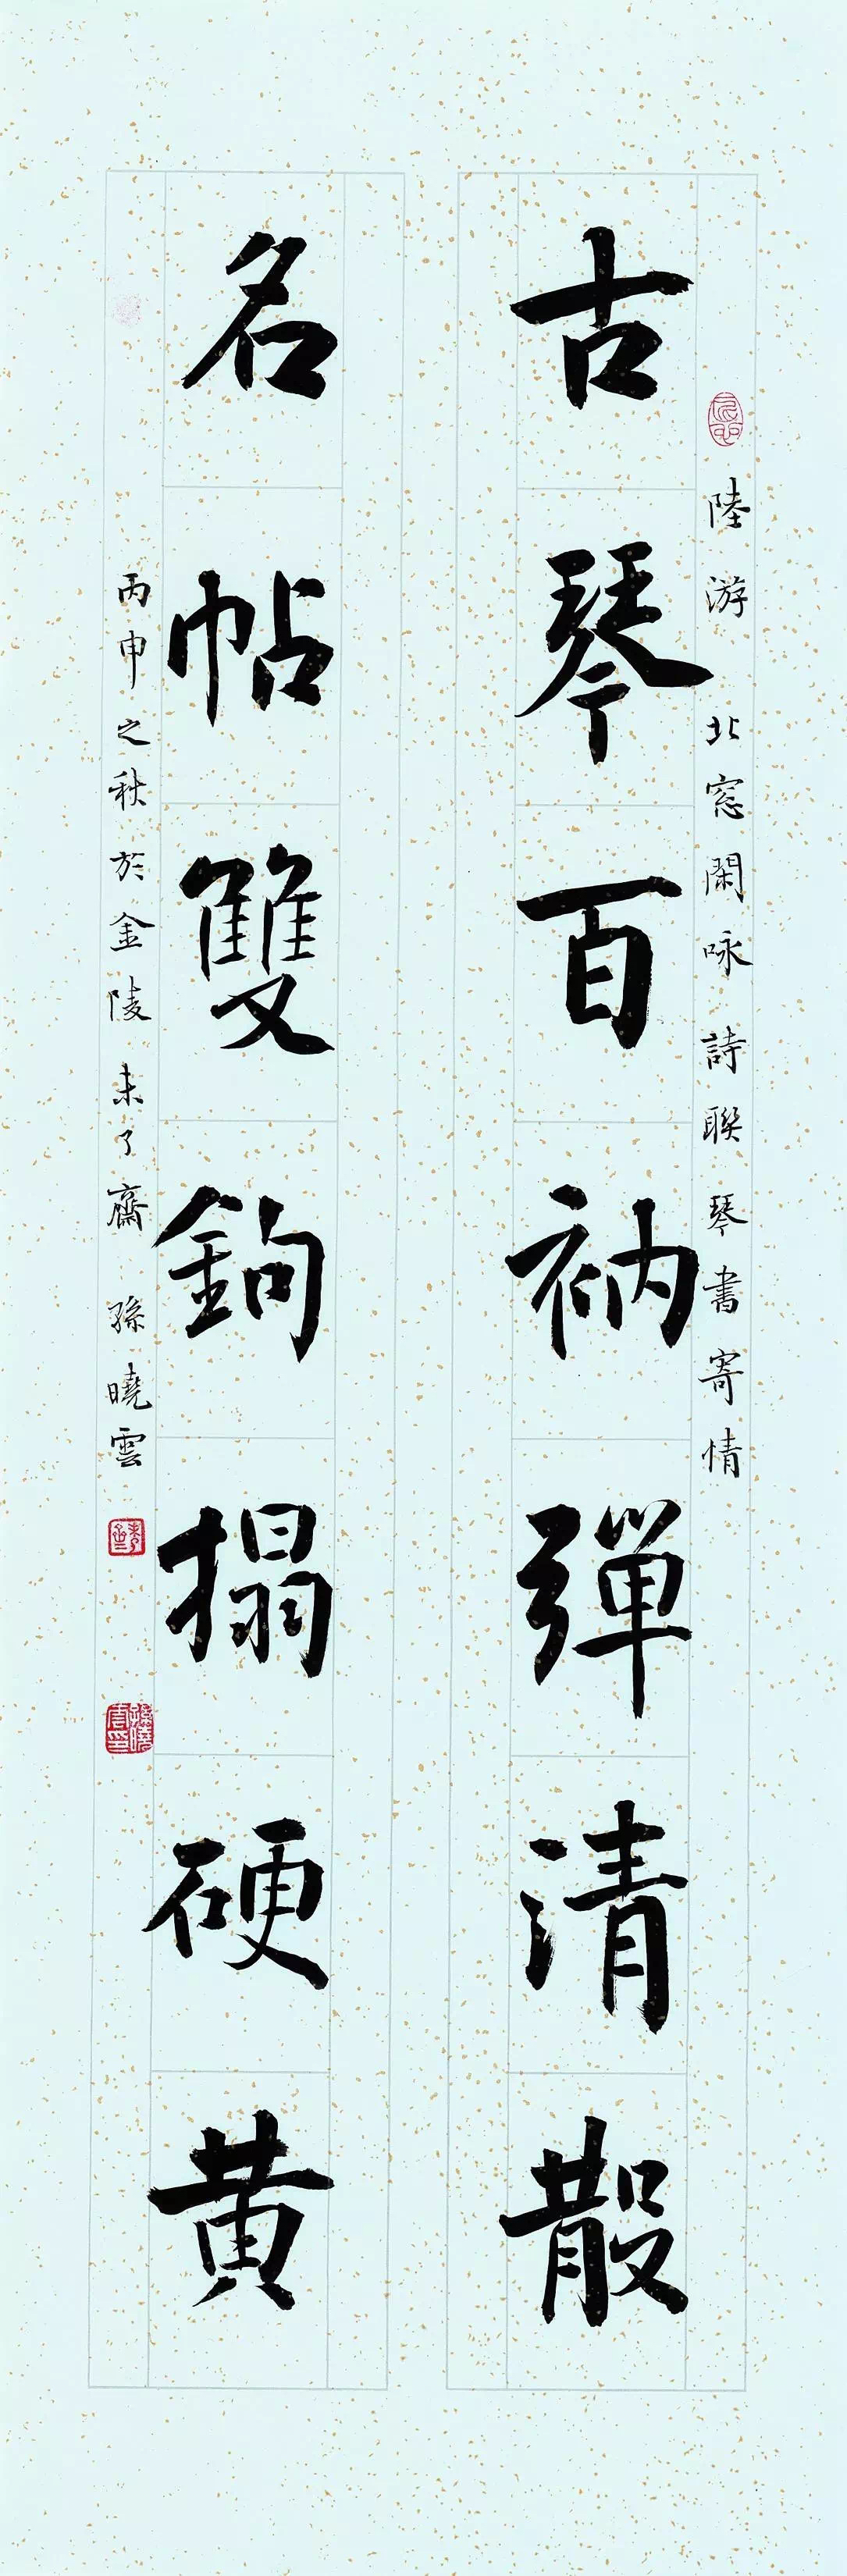 古琴百衲彈清散
陸游 北窓閑咏詩聯 琴書寄情
名帖雙鉤搨硬黄
丙申之秋於金陵未了齋 孫曉雲
孫曉雲印